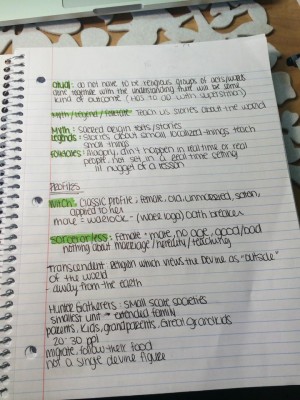 ritual: do not have to be religious groups of acts/words
done together with the understanding there will be some
kind of outcome (Has to do with superstition)
Myth/legend/folktale: teach us stories about the world
Myth: Sacred origin texts/stories
legends: Stories about small localized things, teach
small things
folktales: Imaginary, didn't happen in real time or real
people, not set in a real time setting
nugget of a lesson
PROFILES
Witch: Classic profile: female, old, unmarried, satan,
applied to her
male = warlock - (waerloga) oath breaker
Sorceror/ess: female + male, no age, good/bad
nothing about marriage/heredity/teaching
Transcendent: Religion which views the Devine as "outside"
of the world
away from the earth
Hunter Gatherers: Small scale societies
smallest unit → extended family
parents, kids, grandparents, Great Grandkids
20-30 ppl
migrate, follow their food
not a single devine figure